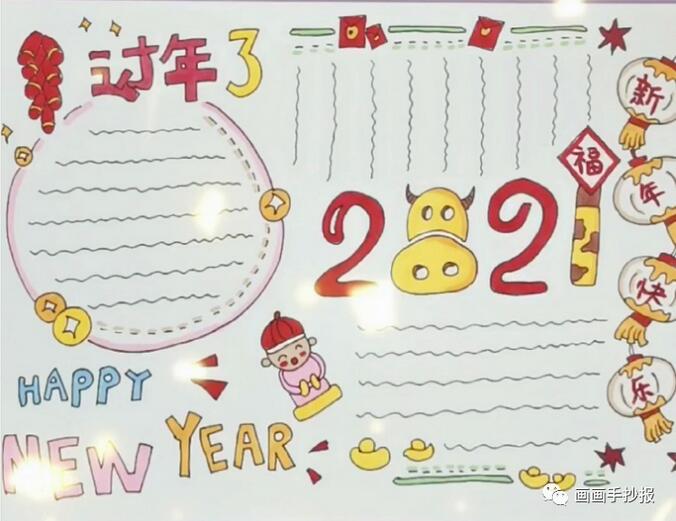 过年3
福
2021
新
年
快
乐
HAPPY
NEW YEAR
画画手抄报